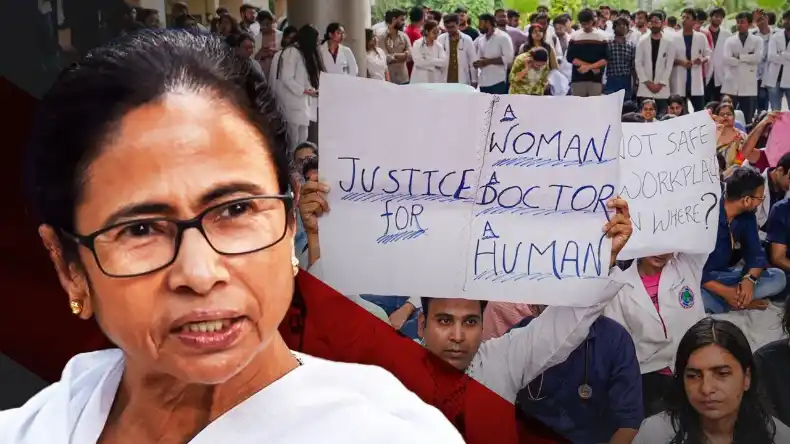 JUSTICE
FOR
A
WOMAN
A
DOCTOR
A
HUMAN
NOT SAFE
WORKPLA
WHERE?